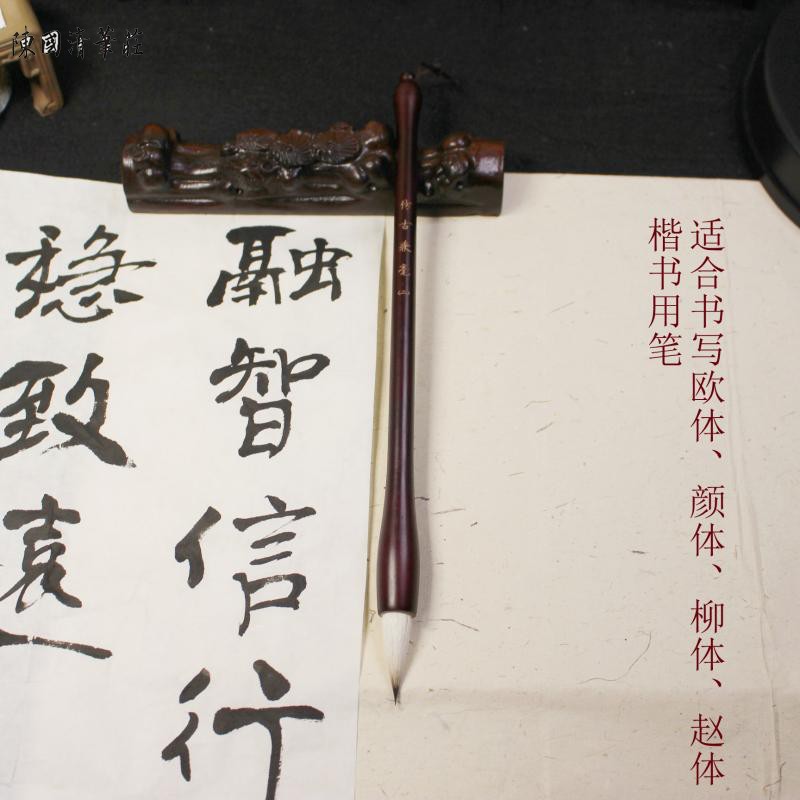 陳國清筆莊
适合书写欧体、颜体、柳体、赵体
楷书用笔
古兼毫
融智信行
稳致遠